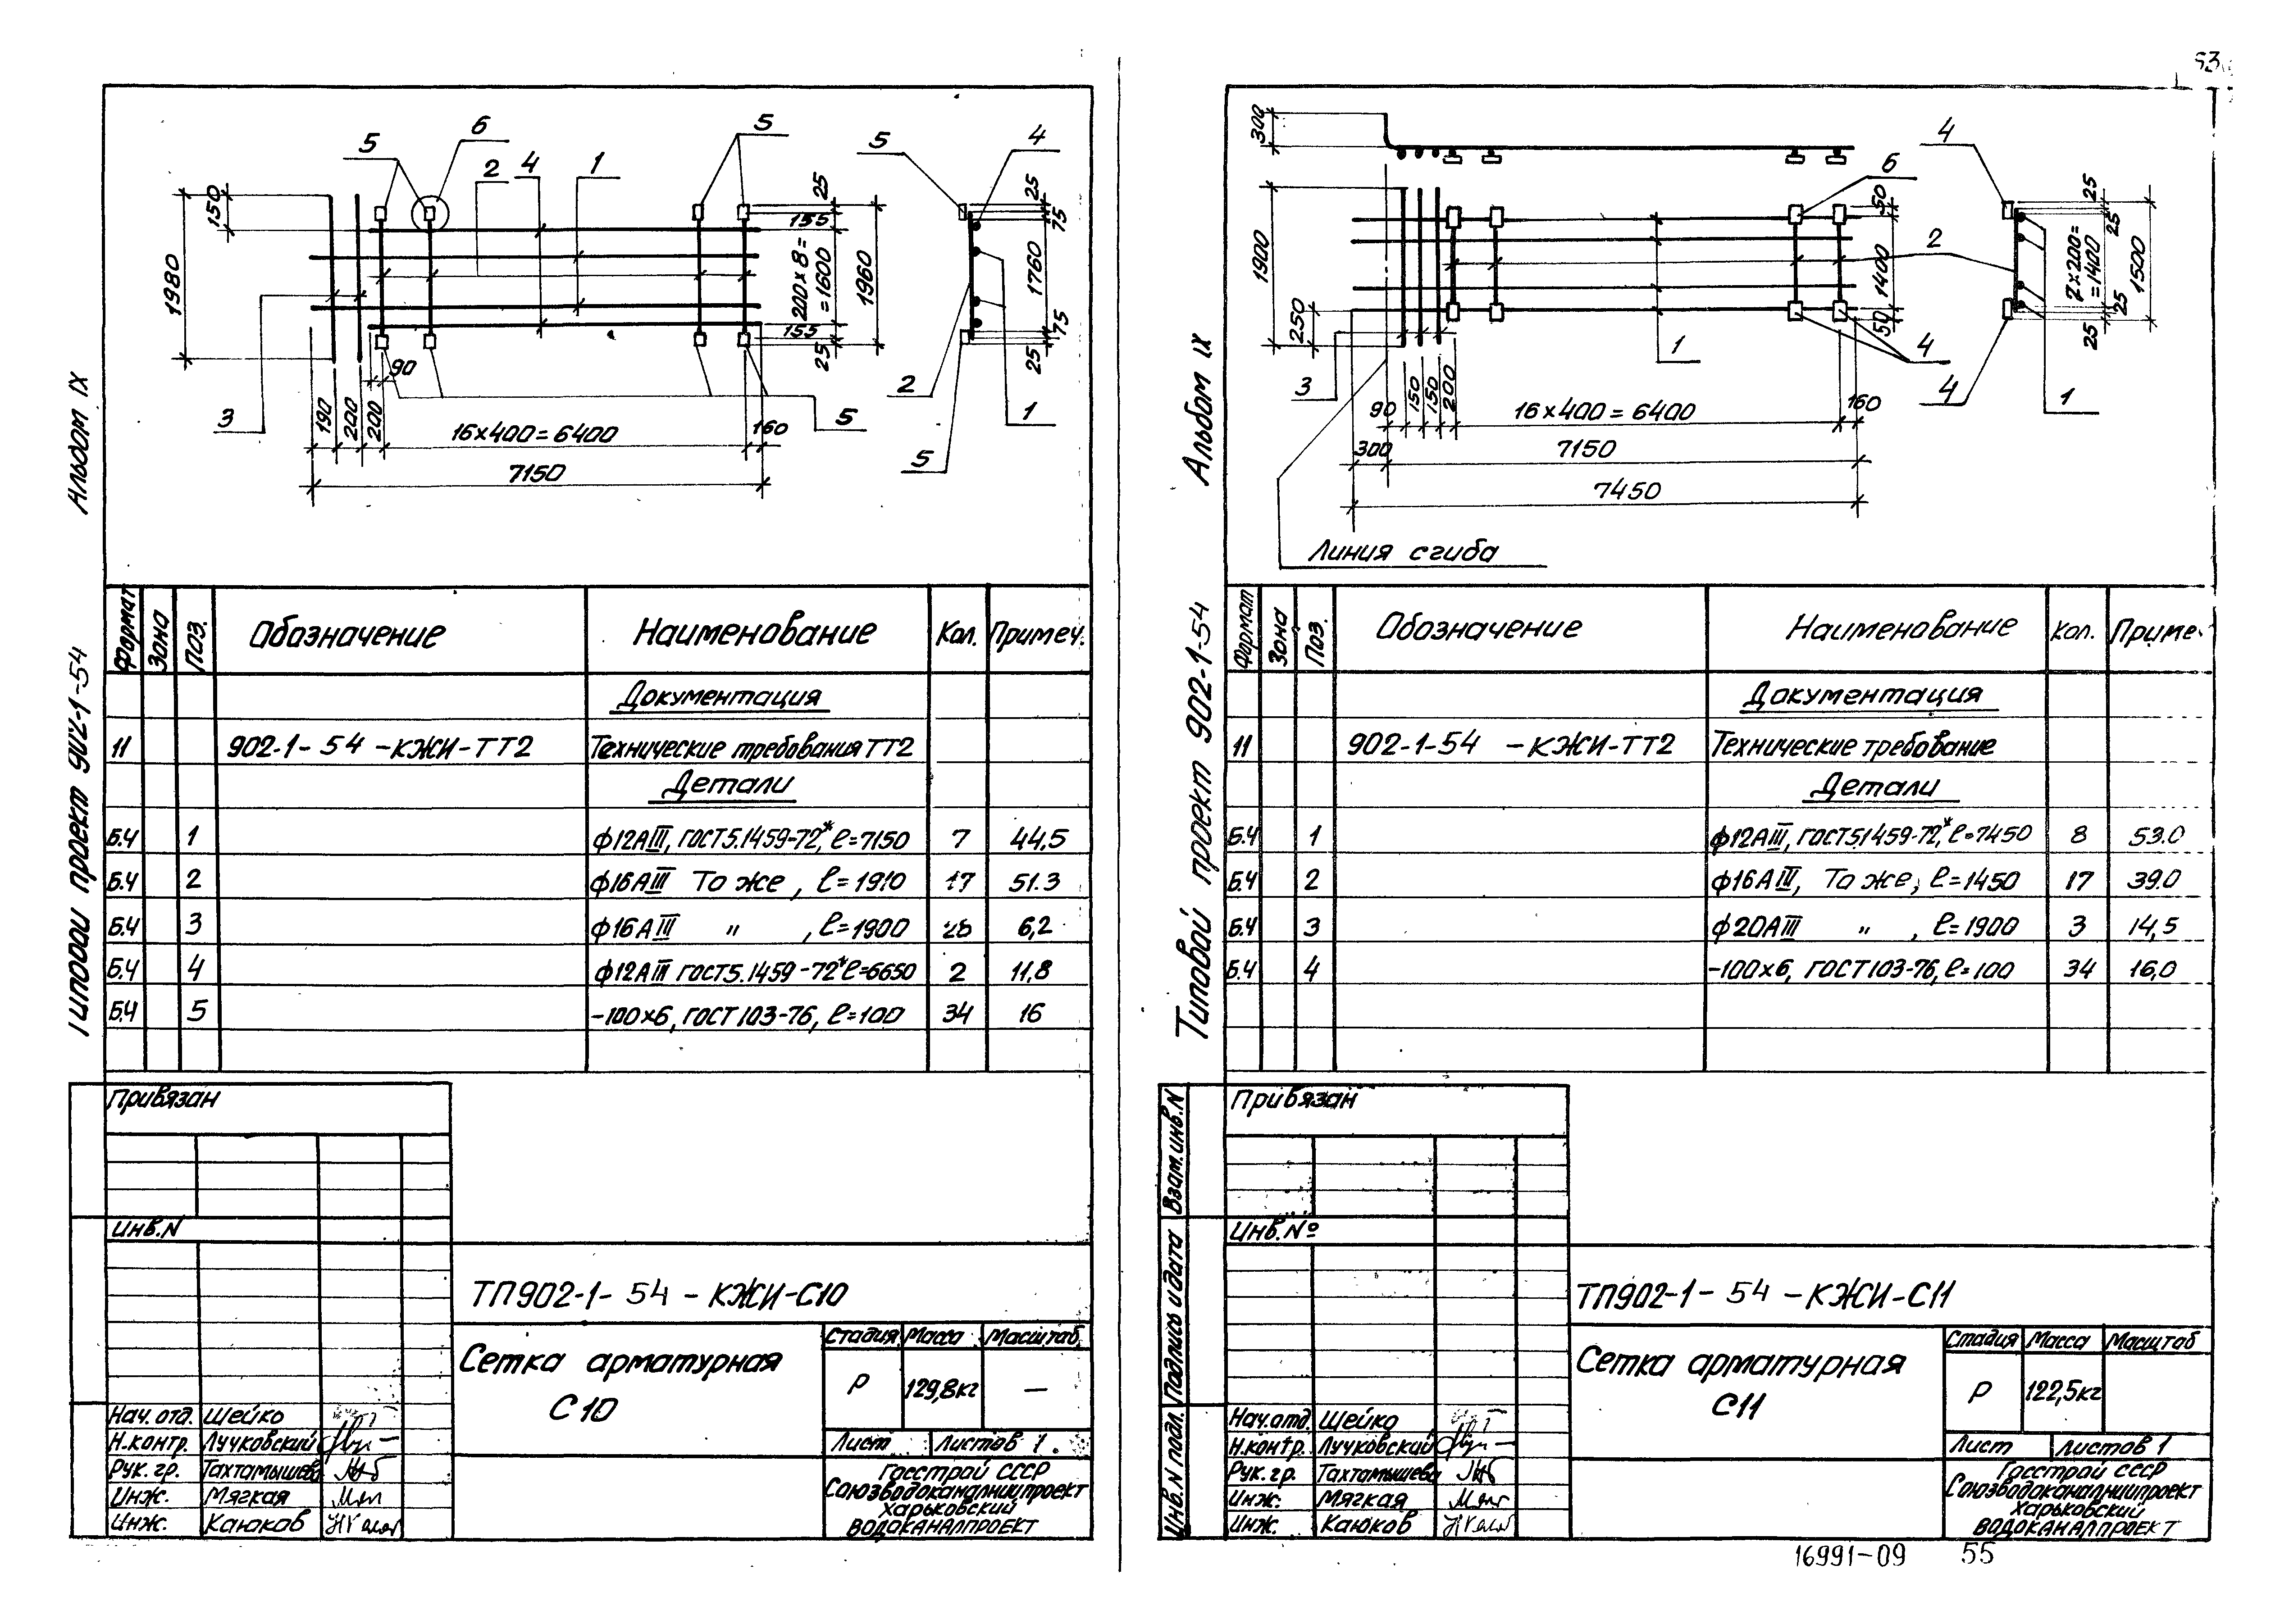 53
Альбом IX
Типовой проект 902-1-54
5
6
2
4
1
5
5
4
150
1980
25
155
200×8=
=1600
1960
155
25
25
75
1760
75
25
90
3
190
200
200
16×400=6400
160
7150
5
2
1
5
Формат
Зона
Поз.
Обозначение
Наименование
Кол.
Примеч.
Документация
11 902-1-54-КЖИ-ТТ2 Технические требования ТТ2
Детали
Б.Ч 1 ф12АIII, ГОСТ5.1459-72*, ℓ=7150 7 44,5
Б.Ч 2 ф16АIII То же, ℓ=1910 17 51.3
Б.Ч 3 ф16АIII " , ℓ=1900 6,2
Б.Ч 4 ф12АIII ГОСТ5.1459-72* ℓ=6650 2 11,8
Б.Ч 5 -100×6, ГОСТ103-76, ℓ=100 34 16
Привязан
Инв.N
ТП902-1-54-КЖИ-С10
Сетка арматурная
С10
Стадия Масса Масштаб
Р 129,8кг —
Лист Листов 1.
Нач.отд. Шейко
Н.контр. Лучковский
Рук.гр. Тахтамышева
Инж. Мягкая
Инж. Каюков
Госстрой СССР
Союзводоканалниипроект
Харьковский
ВОДОКАНАЛПРОЕКТ
Альбом IX
Типовой проект 902-1-54
300
1900
250
6
4
50
1400
50
2
25
25
2×200=
=1400
1500
25
25
1
4
3
90
150
150
200
16×400=6400
160
300
7150
7450
4
1
Линия сгиба
Формат
Зона
Поз.
Обозначение
Наименование
Кол.
Приме.
Документация
11 902-1-54 -КЖИ-ТТ2 Технические требование
Детали
Б.Ч 1 ф12АIII, ГОСТ5.1459-72*, ℓ=7450 8 53.0
Б.Ч 2 ф16АIII, То же, ℓ=1450 17 39.0
Б.Ч 3 ф20АIII " , ℓ=1900 3 14,5
Б.Ч 4 -100×6, ГОСТ103-76, ℓ=100 34 16,0
Взам.инв.N
Подпись и дата
Инв.N подл.
Привязан
Инв.Nº
ТП902-1-54-КЖИ-С11
Сетка арматурная
С11
Стадия Масса Масштаб
Р 122,5кг
Лист Листов 1
Нач.отд. Шейко
Н.контр. Лучковский
Рук.гр. Тахтамышева
Инж. Мягкая
Инж. Каюков
Госстрой СССР
Союзводоканалниипроект
Харьковский
ВОДОКАНАЛПРОЕКТ
16991-09 55